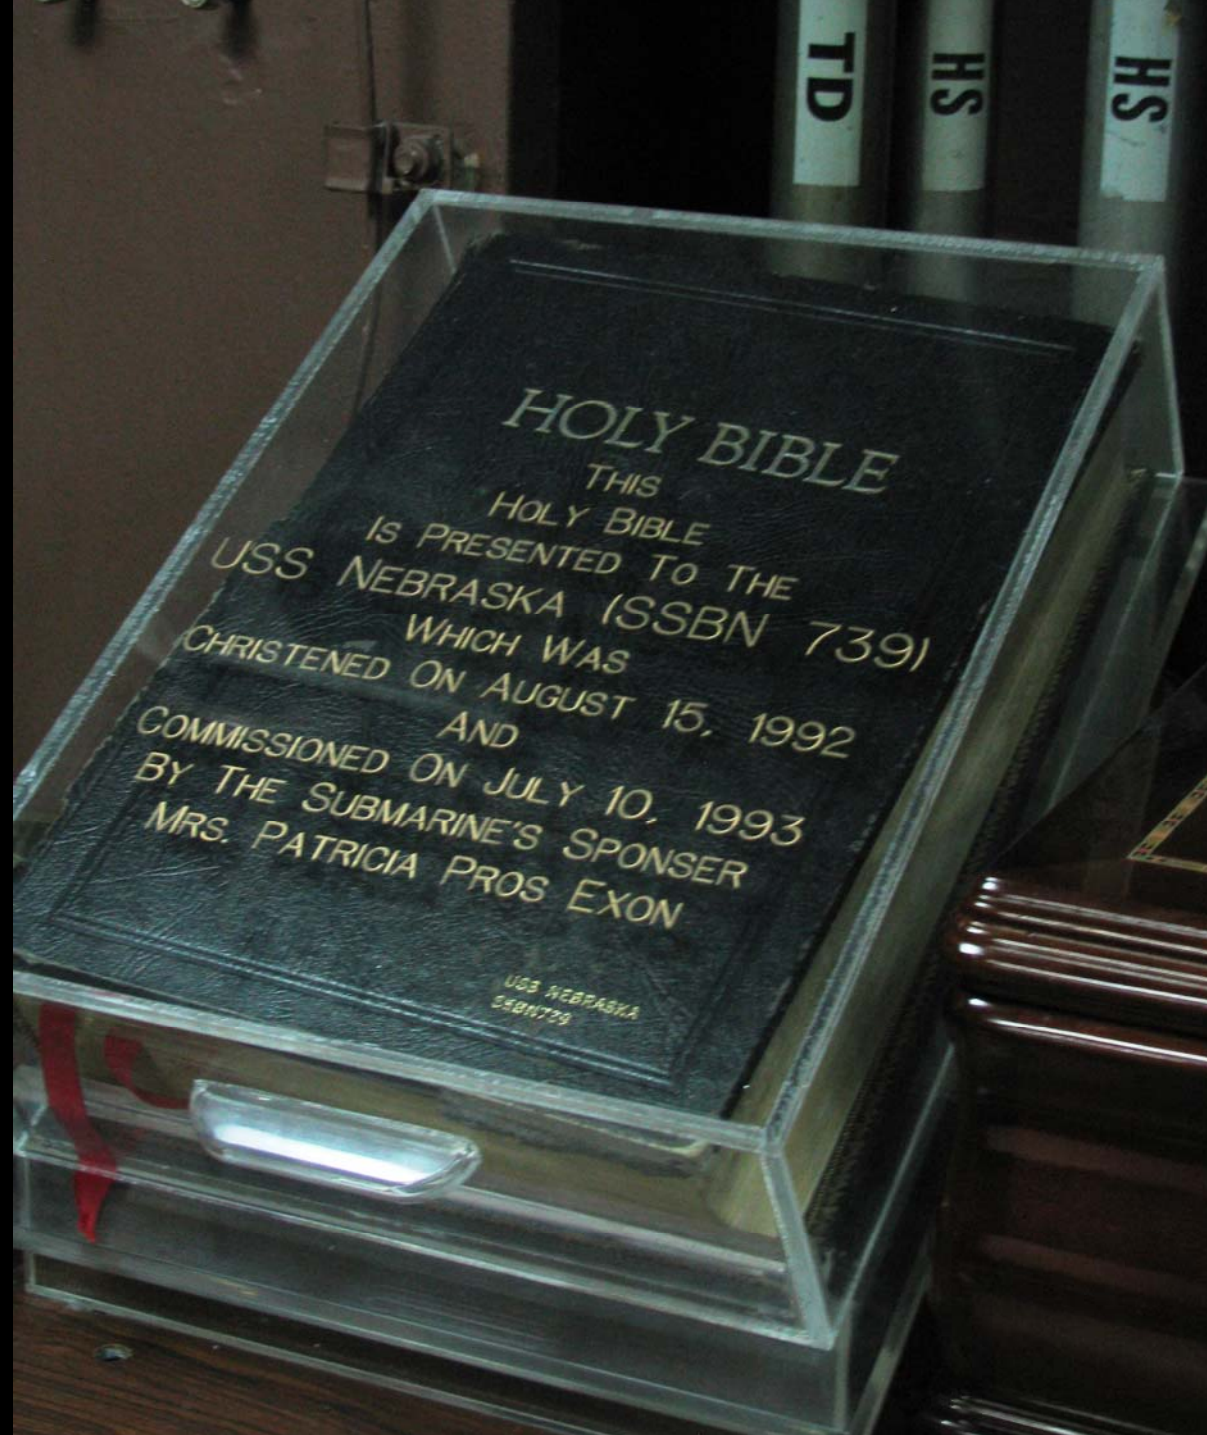 TD
HS
HS
HOLY BIBLE
THIS
HOLY BIBLE
IS PRESENTED TO THE
USS NEBRASKA (SSBN 739)
WHICH WAS
CHRISTENED ON AUGUST 15, 1992
AND
COMMISSIONED ON JULY 10, 1993
BY THE SUBMARINE'S SPONSER
MRS. PATRICIA PROS EXON
USS NEBRASKA
SSBN739